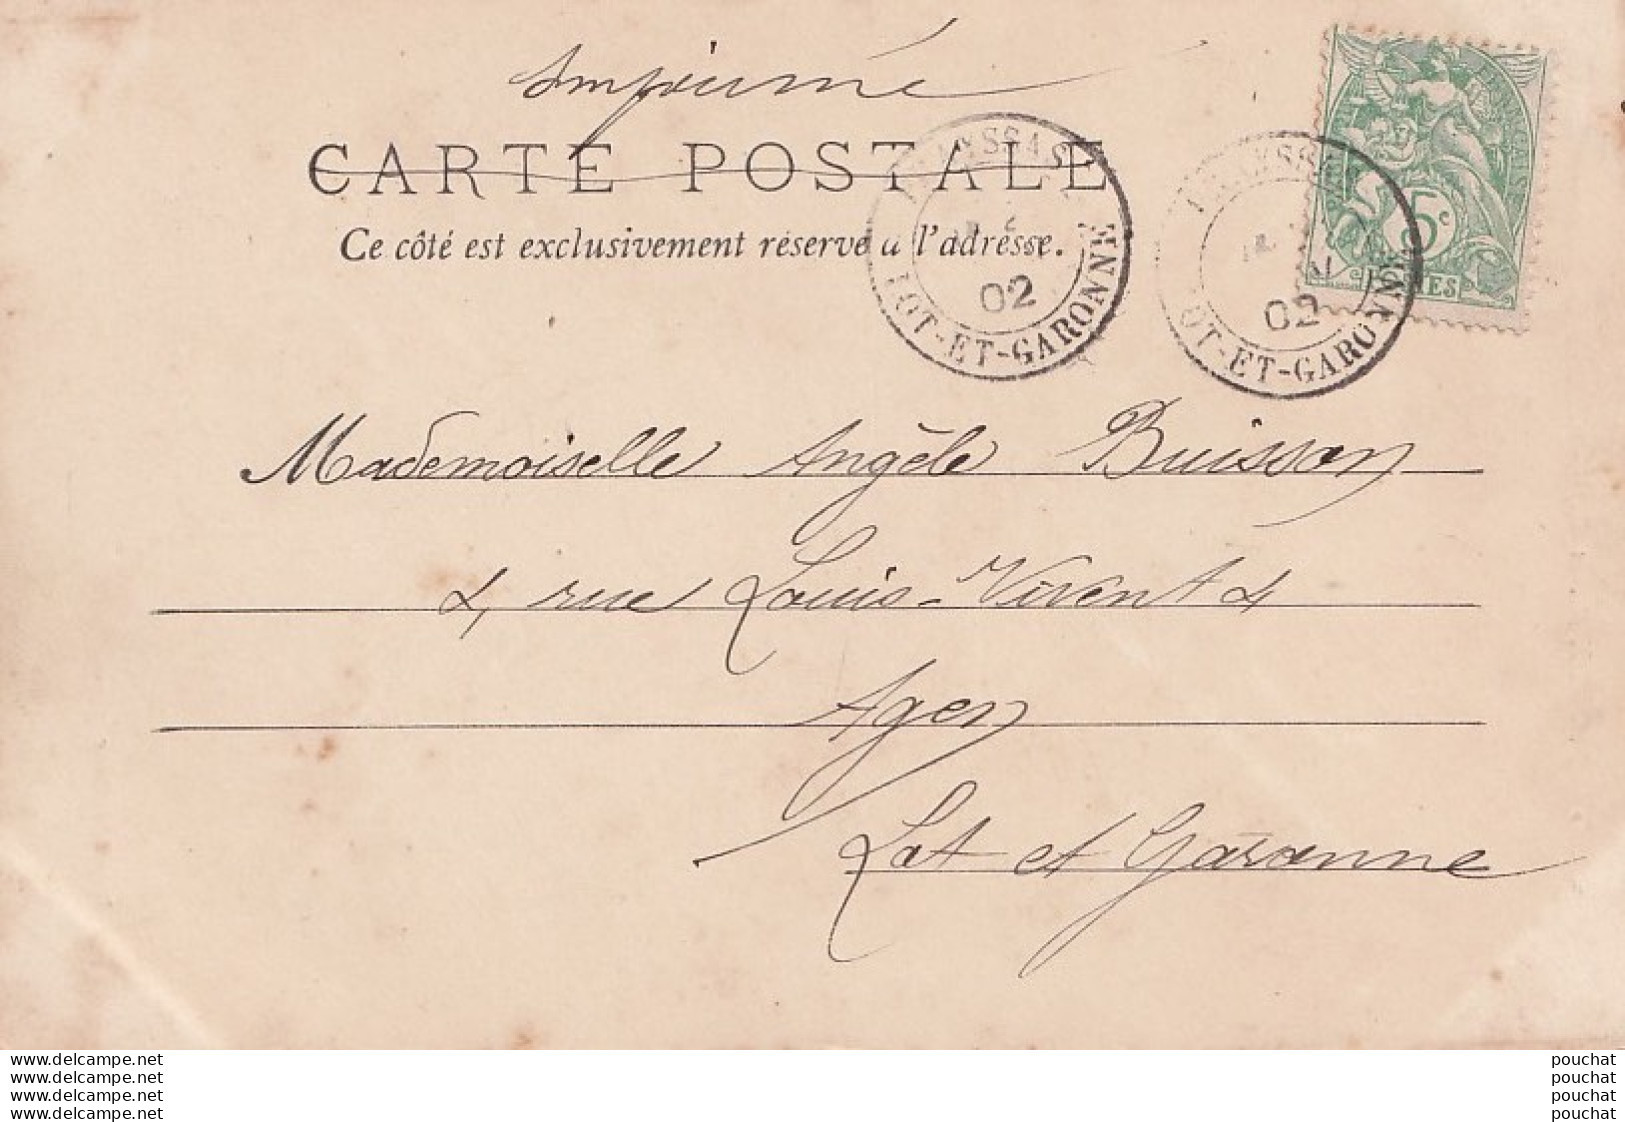 Imprimé
CARTE POSTALE
Ce côté est exclusivement réservé à l'adresse.
LOT-ET-GARONNE
02
OT-ET-GARONNE
02
5c
Mademoiselle Angèle Buisson
4, rue Louis-Vivent 4
Agen
Lot et Garonne
www.delcampe.net
www.delcampe.net
www.delcampe.net
www.delcampe.net
pouchat
pouchat
pouchat
pouchat